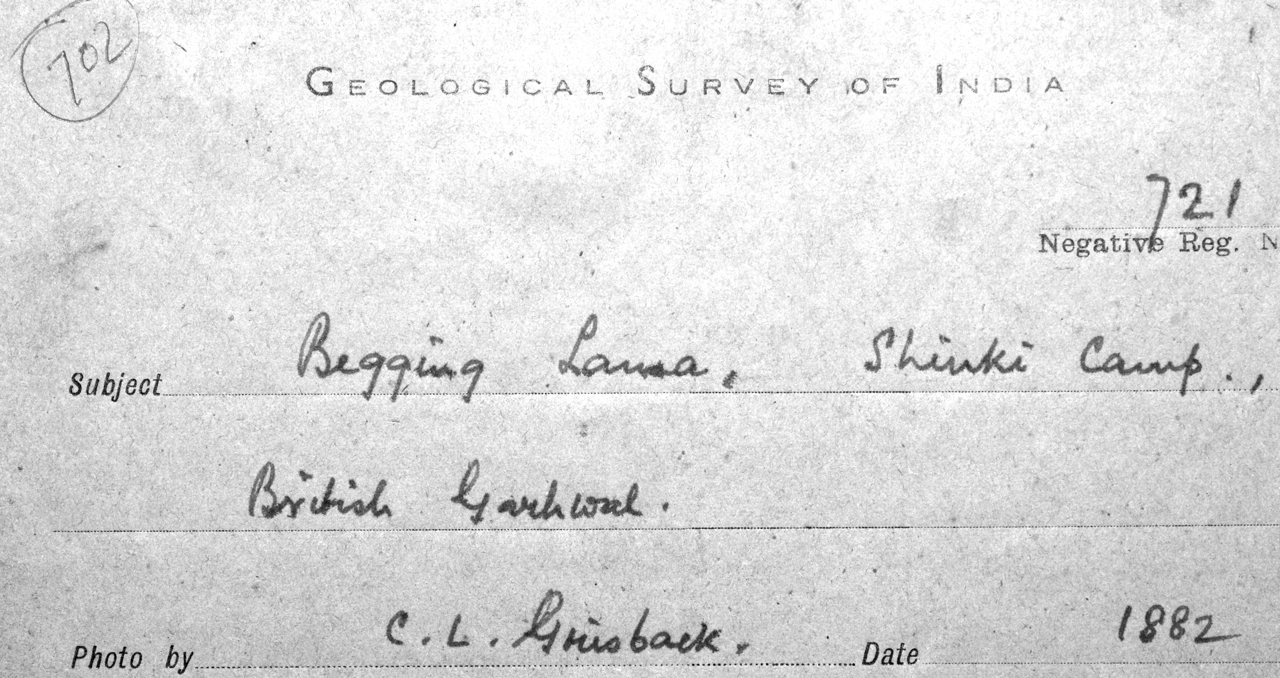 702
GEOLOGICAL SURVEY OF INDIA
721
Negative Reg. N
Subject Begging Lama, Shinki Camp.,
British Garhwal.
Photo by C. L. Griesback. Date 1882